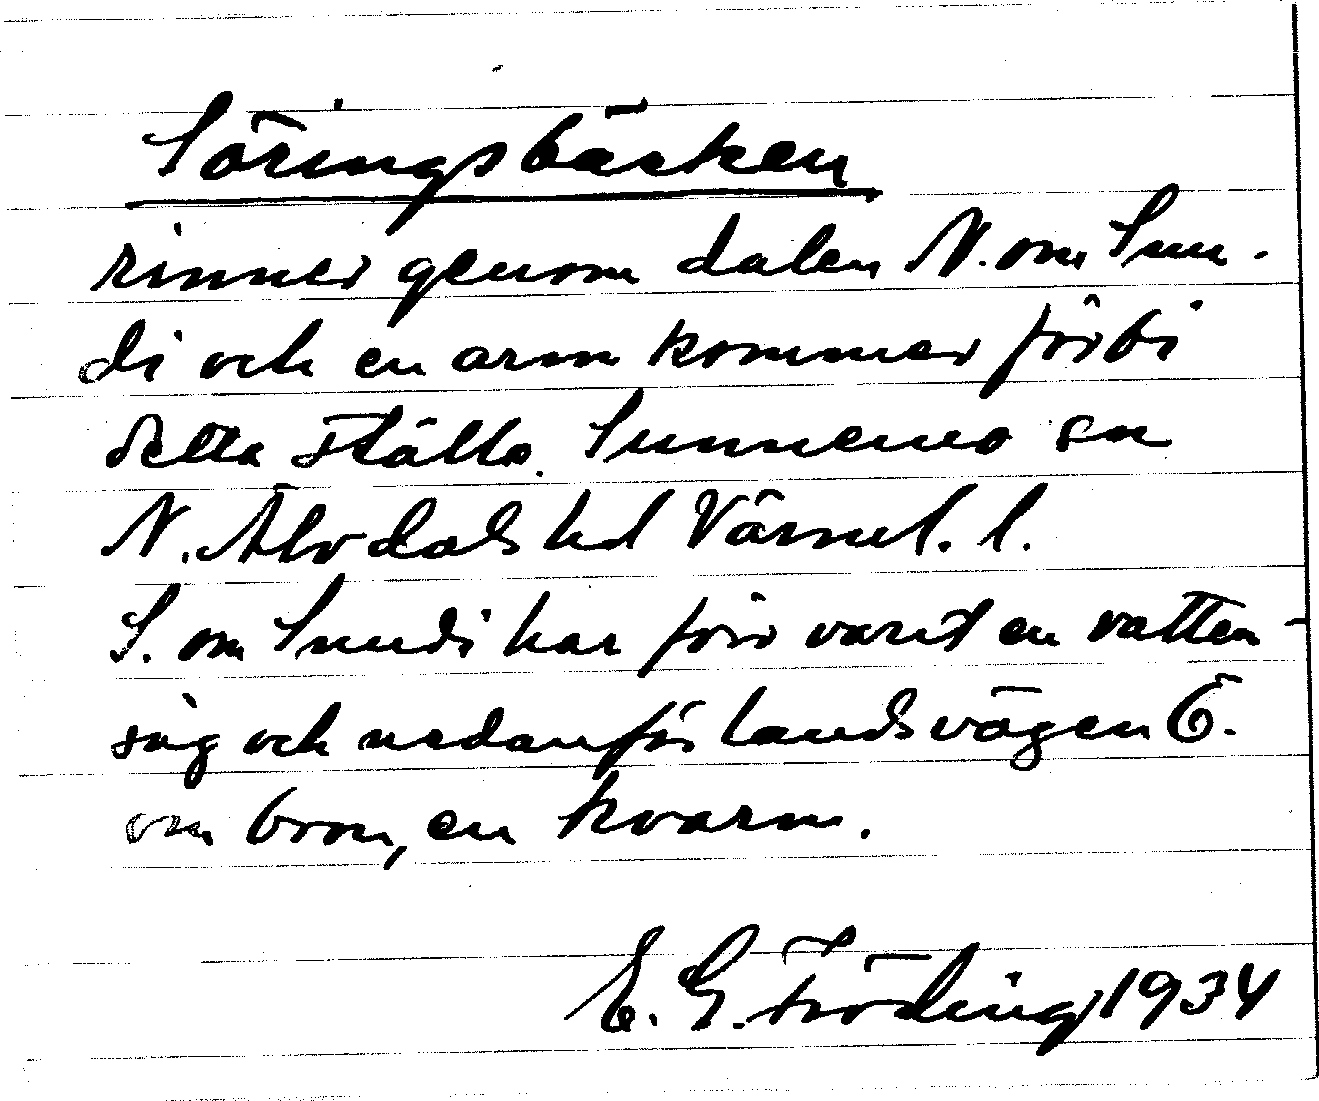 Söringsbäcken
rinner genom dalen N. om Sun-
di och en arm kommer förbi
detta ställe. Sunnemo sn
N. Älvdals hd Värml. l.
S. om Sundi har förr varit en vatten-
såg och nedanför landsvägen Ö.
om bron, en kvarn.
E. G. Fröding 1934